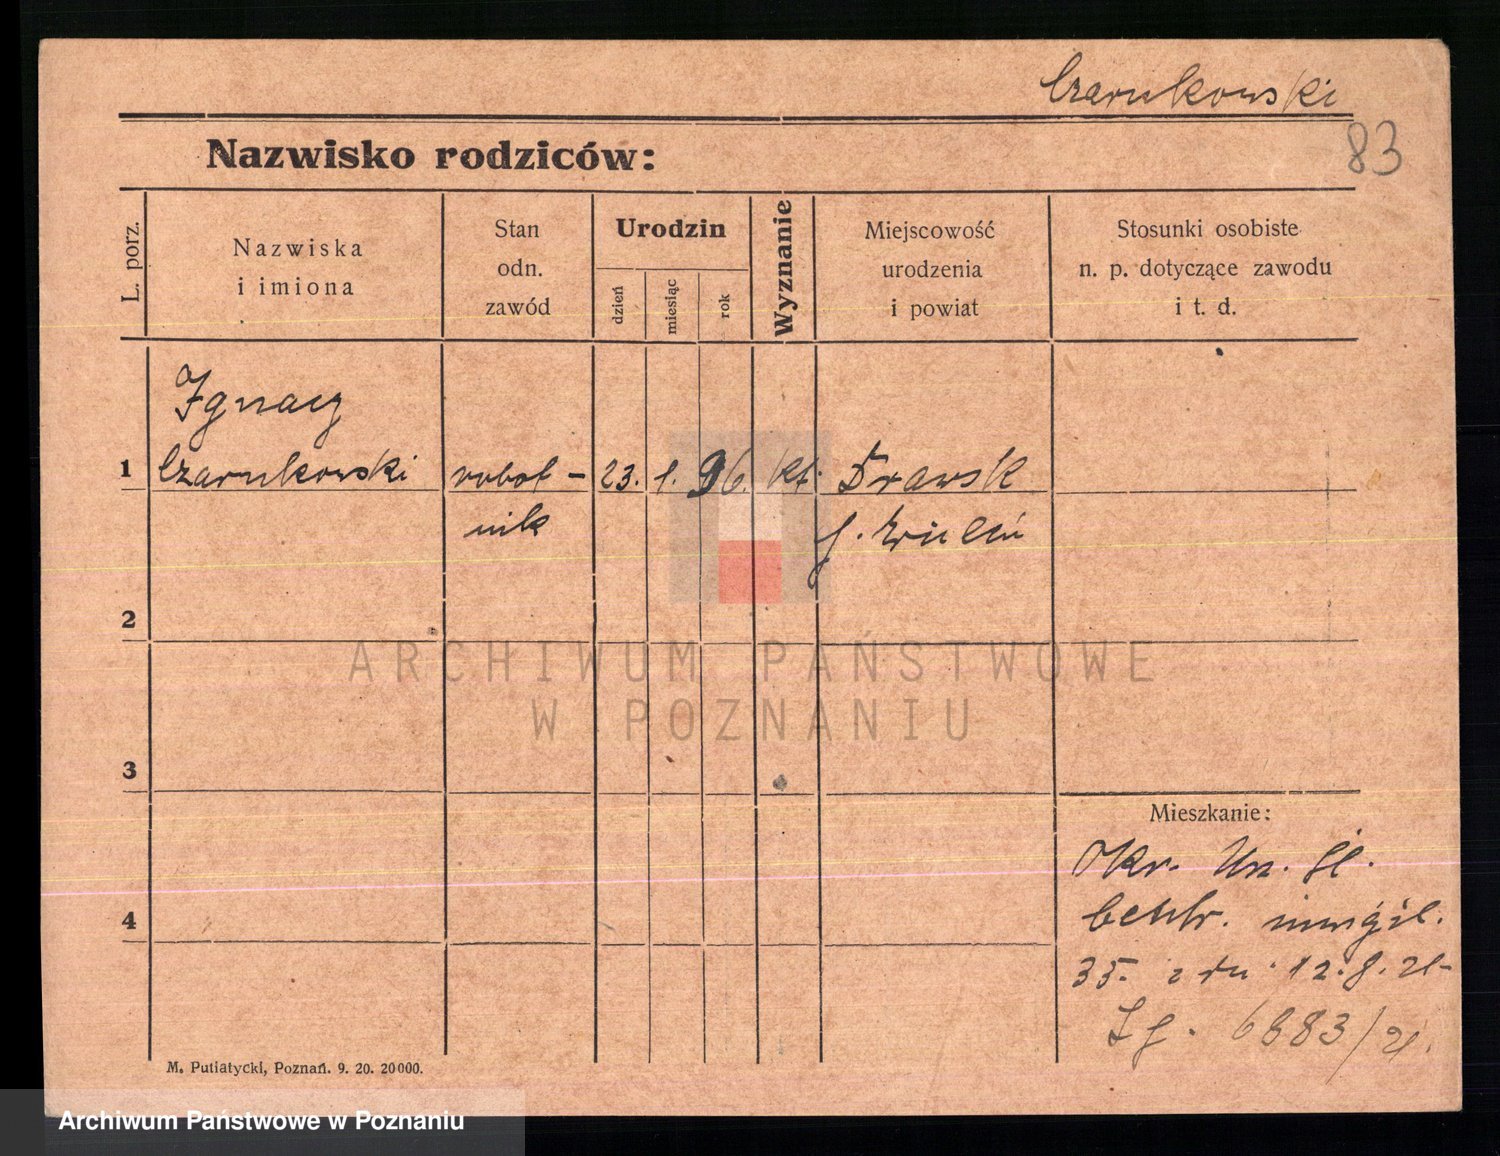 Czarnkowski
83
Nazwisko rodziców:
L. porz.
Nazwiska
i imiona
Stan
odn.
zawód
Urodzin
dzień
miesiąc
rok
Wyznanie
Miejscowość
urodzenia
i powiat
Stosunki osobiste
n. p. dotyczące zawodu
i t. d.
Ignacy
1 Czarnkowski robot- 23. 1. 96. kt. Drawsk
nik p. Wieleń
2
3
4
Mieszkanie:
Okr. Un.
35. z dn. 12.8.21
Lg. 6883/21.
M. Putiatycki, Poznań. 9. 20. 20000.
ARCHIWUM PAŃSTWOWE
W POZNANIU
Archiwum Państwowe w Poznaniu